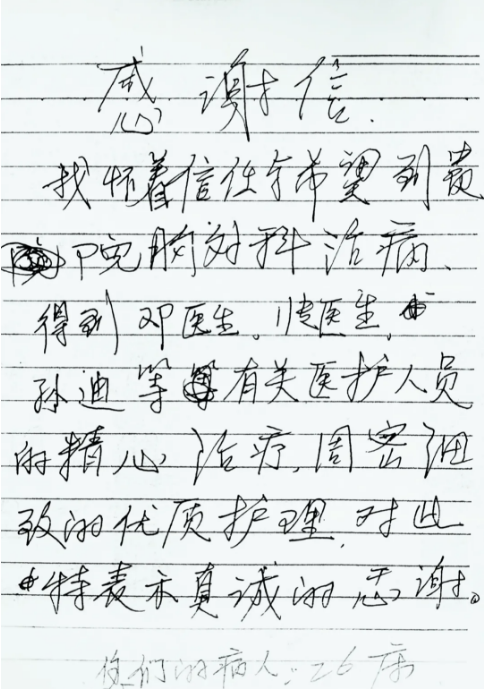 感谢信.
我怀着信任与希望到贵
院胸外科治病、
得到邓医生。医生,
孙迪等有关医护人员
的精心治疗,周密细
致的优质护理,对此
特表示真诚的感谢。
你们的病人:26床